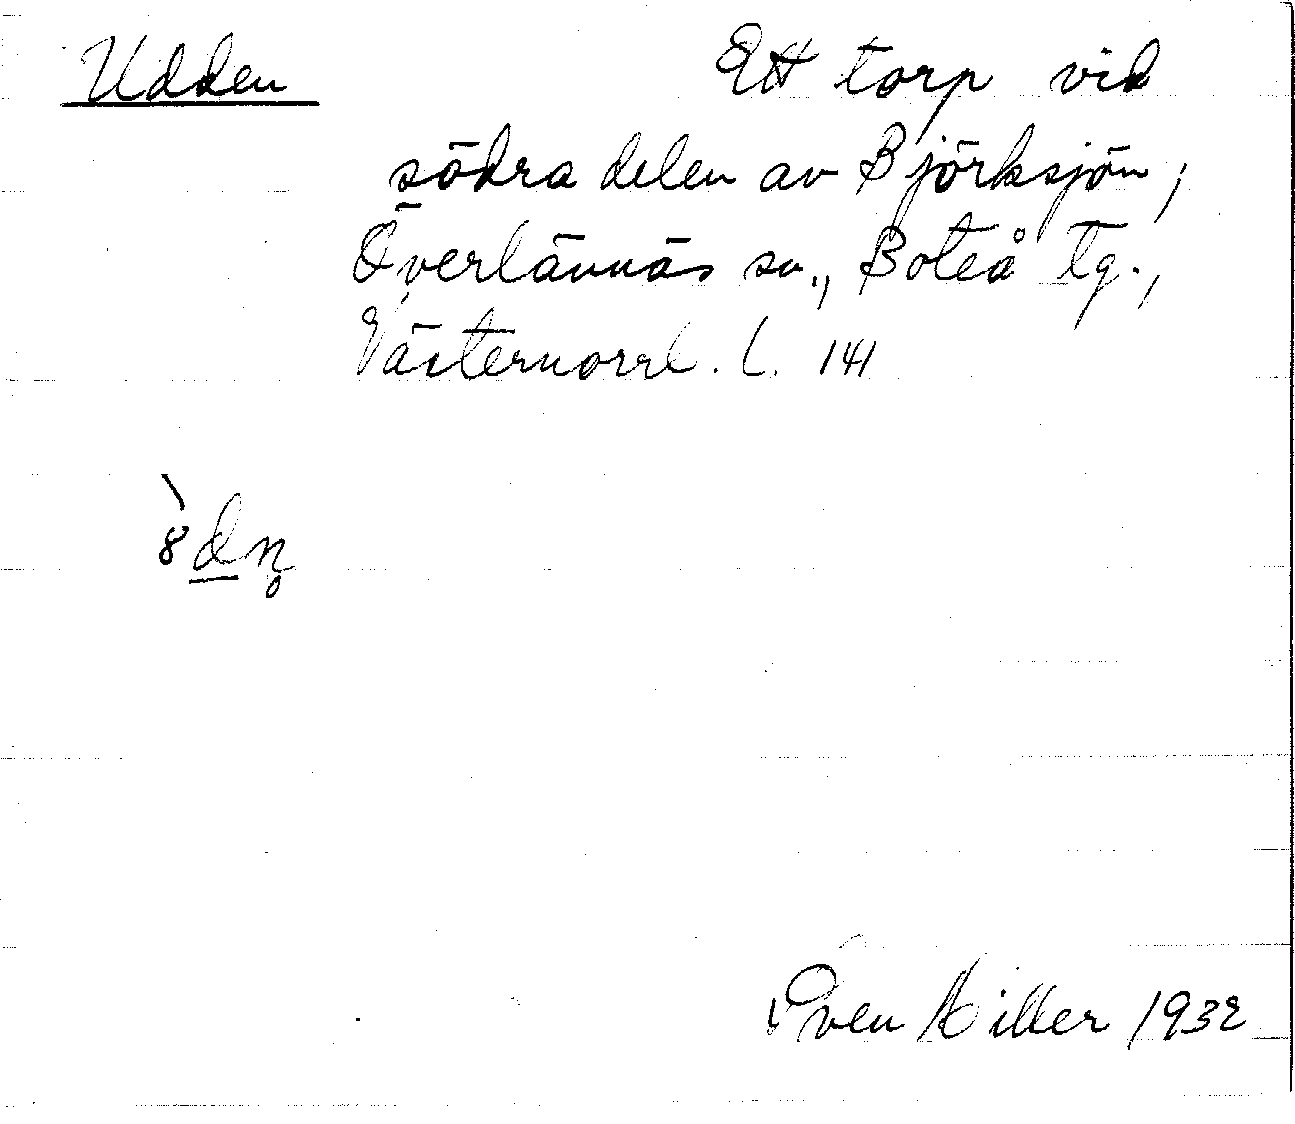 Udden Ett torp vid
södra delen av Björksjön,
Överlännäs sn., Boteå tg.,
Västernorrl. l. 141
`8dn̥
Sven Hiller 1932